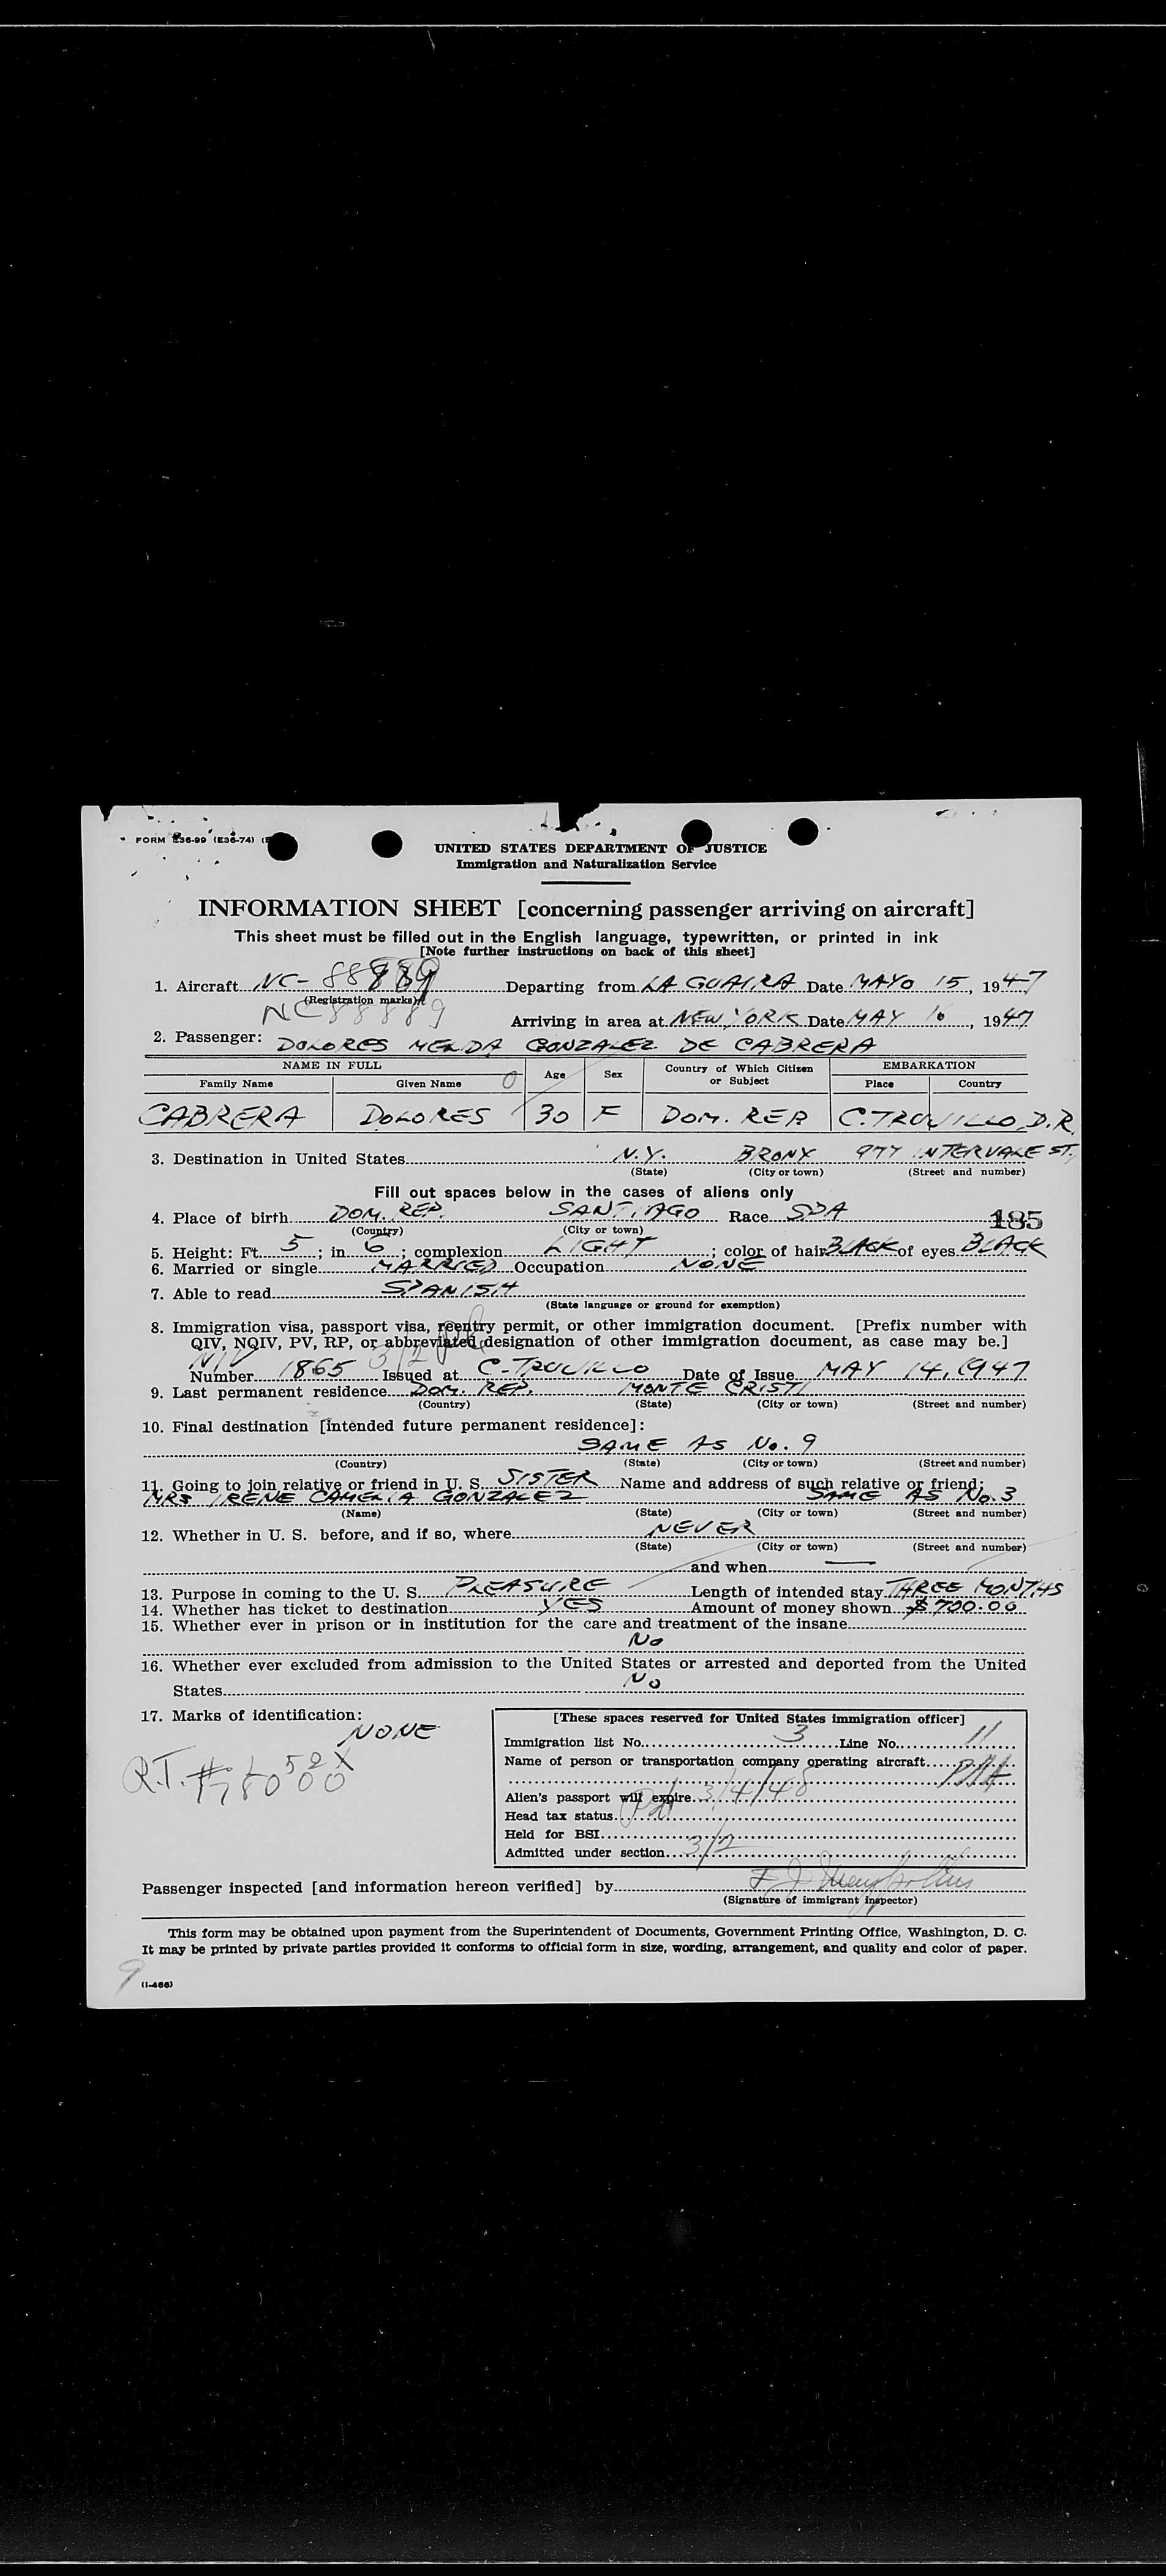 FORM I36-99 (E36-74)
UNITED STATES DEPARTMENT OF JUSTICE
Immigration and Naturalization Service
INFORMATION SHEET [concerning passenger arriving on aircraft]
This sheet must be filled out in the English language, typewritten, or printed in ink
[Note further instructions on back of this sheet]
1. Aircraft NC-88889 Departing from LA GUAIRA Date MAYO 15, 1947
(Registration marks)
NC88889 Arriving in area at NEW YORK Date MAY 16, 1947
2. Passenger: DOLORES MELIDA GONZALEZ DE CABRERA
NAME IN FULL Age Sex Country of Which Citizen or Subject EMBARKATION
Family Name Given Name Place Country
CABRERA DOLORES 30 F DOM. REP. C. TRUJILLO, D.R.
3. Destination in United States N.Y. BRONX 977 INTERVALE ST.
(State) (City or town) (Street and number)
Fill out spaces below in the cases of aliens only
4. Place of birth DOM. REP. SANTIAGO Race SDA
185
(Country) (City or town)
5. Height: Ft. 5; in 6; complexion LIGHT; color of hair BLACK of eyes BLACK
6. Married or single MARRIED Occupation NONE
7. Able to read SPANISH
(State language or ground for exemption)
8. Immigration visa, passport visa, reentry permit, or other immigration document. [Prefix number with
QIV, NQIV, PV, RP, or abbreviated designation of other immigration document, as case may be.]
NIV 3/2
Number 1865 Issued at C-TRUJILLO Date of Issue MAY 14, 1947
9. Last permanent residence DOM. REP. MONTE CRISTI
(Country) (State) (City or town) (Street and number)
10. Final destination [intended future permanent residence]:
SAME AS No. 9
(Country) (State) (City or town) (Street and number)
11. Going to join relative or friend in U. S. SISTER Name and address of such relative or friend:
MRS IRENE CAMELIA GONZALEZ SAME AS No. 3
(Name) (State) (City or town) (Street and number)
12. Whether in U. S. before, and if so, where NEVER
(State) (City or town) (Street and number)
and when —
13. Purpose in coming to the U. S. PLEASURE Length of intended stay THREE MONTHS
14. Whether has ticket to destination YES Amount of money shown $700.00
15. Whether ever in prison or in institution for the care and treatment of the insane
No
16. Whether ever excluded from admission to the United States or arrested and deported from the United
States No
17. Marks of identification:
NONE
R.T.
[These spaces reserved for United States immigration officer]
Immigration list No. 3 Line No. 11
Name of person or transportation company operating aircraft PAA
Alien's passport will expire 3/4/48
Head tax status Pd
Held for BSI
Admitted under section 3/2
Passenger inspected [and information hereon verified] by
(Signature of immigrant inspector)
This form may be obtained upon payment from the Superintendent of Documents, Government Printing Office, Washington, D. C.
It may be printed by private parties provided it conforms to official form in size, wording, arrangement, and quality and color of paper.
9
(I-466)